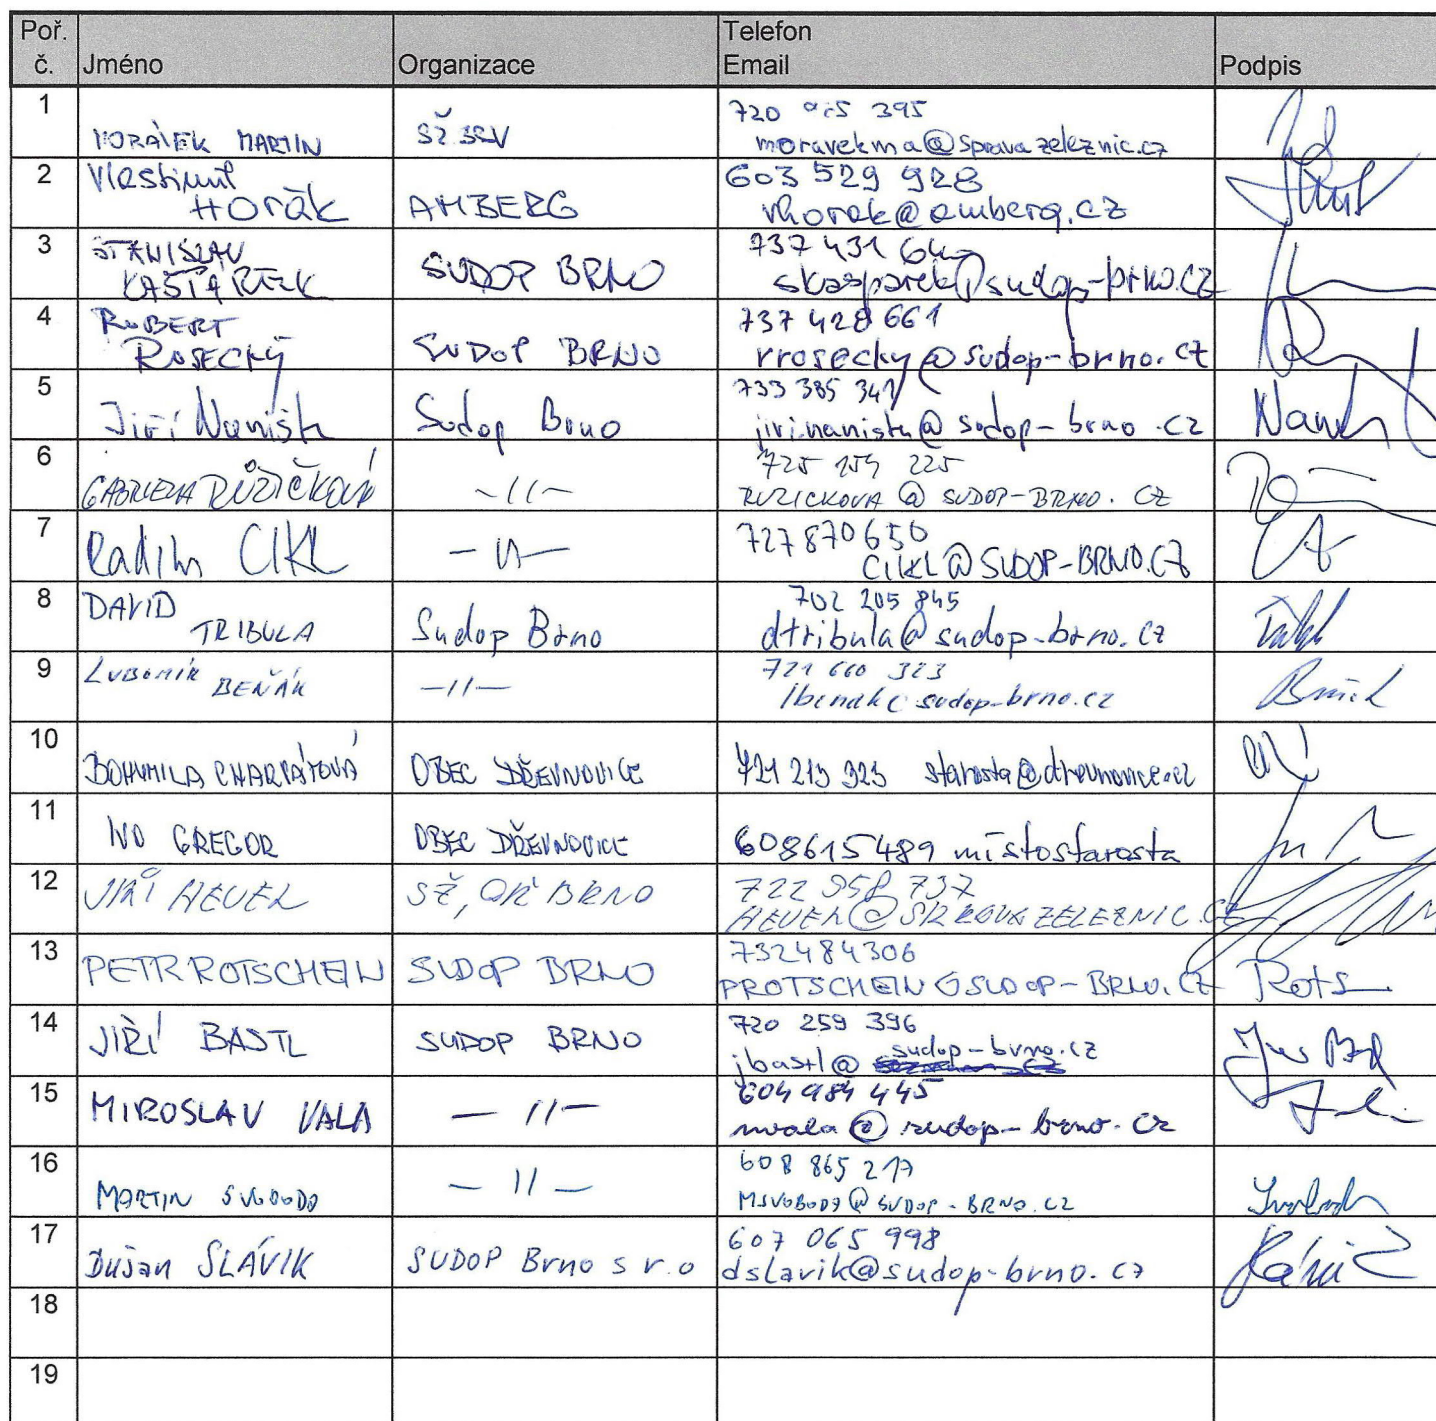 Poř. č. Jméno Organizace Telefon Email Podpis
1 MORAVEK MARTIN SŽ SSV 720 395
moravekma@spravazeleznic.cz
2 Vlastimil Horák AMBERG 603 529 928
vhorak@amberg.cz
3 STANISLAV KAŠPÁREK SUDOP BRNO 737 431
skasparek@sudop-brno.cz
4 ROBERT ROSECKÝ SUDOP BRNO 737 428 661
rrosecky@sudop-brno.cz
5 Jiří Sudop Brno 733 385 341
@sudop-brno.cz
6 GABRIELA RŮŽIČKOVÁ -//- 725 159 225
RUZICKOVA@SUDOP-BRNO.CZ
7 Radim CIKL -//- 727 870 650
CIKL@SUDOP-BRNO.CZ
8 DAVID TRIBULA Sudop Brno 702 205 845
dtribula@sudop-brno.cz
9 LUBOMÍR BEŇÁK -//- 721 660 323
lbenak@sudop-brno.cz
10 BOHUMILA OBEC DŘEVNOVICE 721 213 323 starosta@drevnovice.cz
11 IVO GREGOR OBEC DŘEVNOVICE 608615489 místostarosta
12 JIŘÍ HEVER SŽ, BRNO 722 958 737
13 PETR ROTSCHEIN SUDOP BRNO 732484306
PROTSCHEIN@SUDOP-BRNO.CZ Rots
14 JIŘÍ BASTL SUDOP BRNO 720 259 396
jbastl@ sudop-brno.cz
15 MIROSLAV VALA - //- 604 984 445
mvala@sudop-brno.cz
16 MARTIN SVOBODA - // - 608 865 217
MSVOBODA@SUDOP-BRNO.CZ
17 Dušan SLÁVIK SUDOP Brno s r.o 607 065 998
dslavik@sudop-brno.cz
18
19